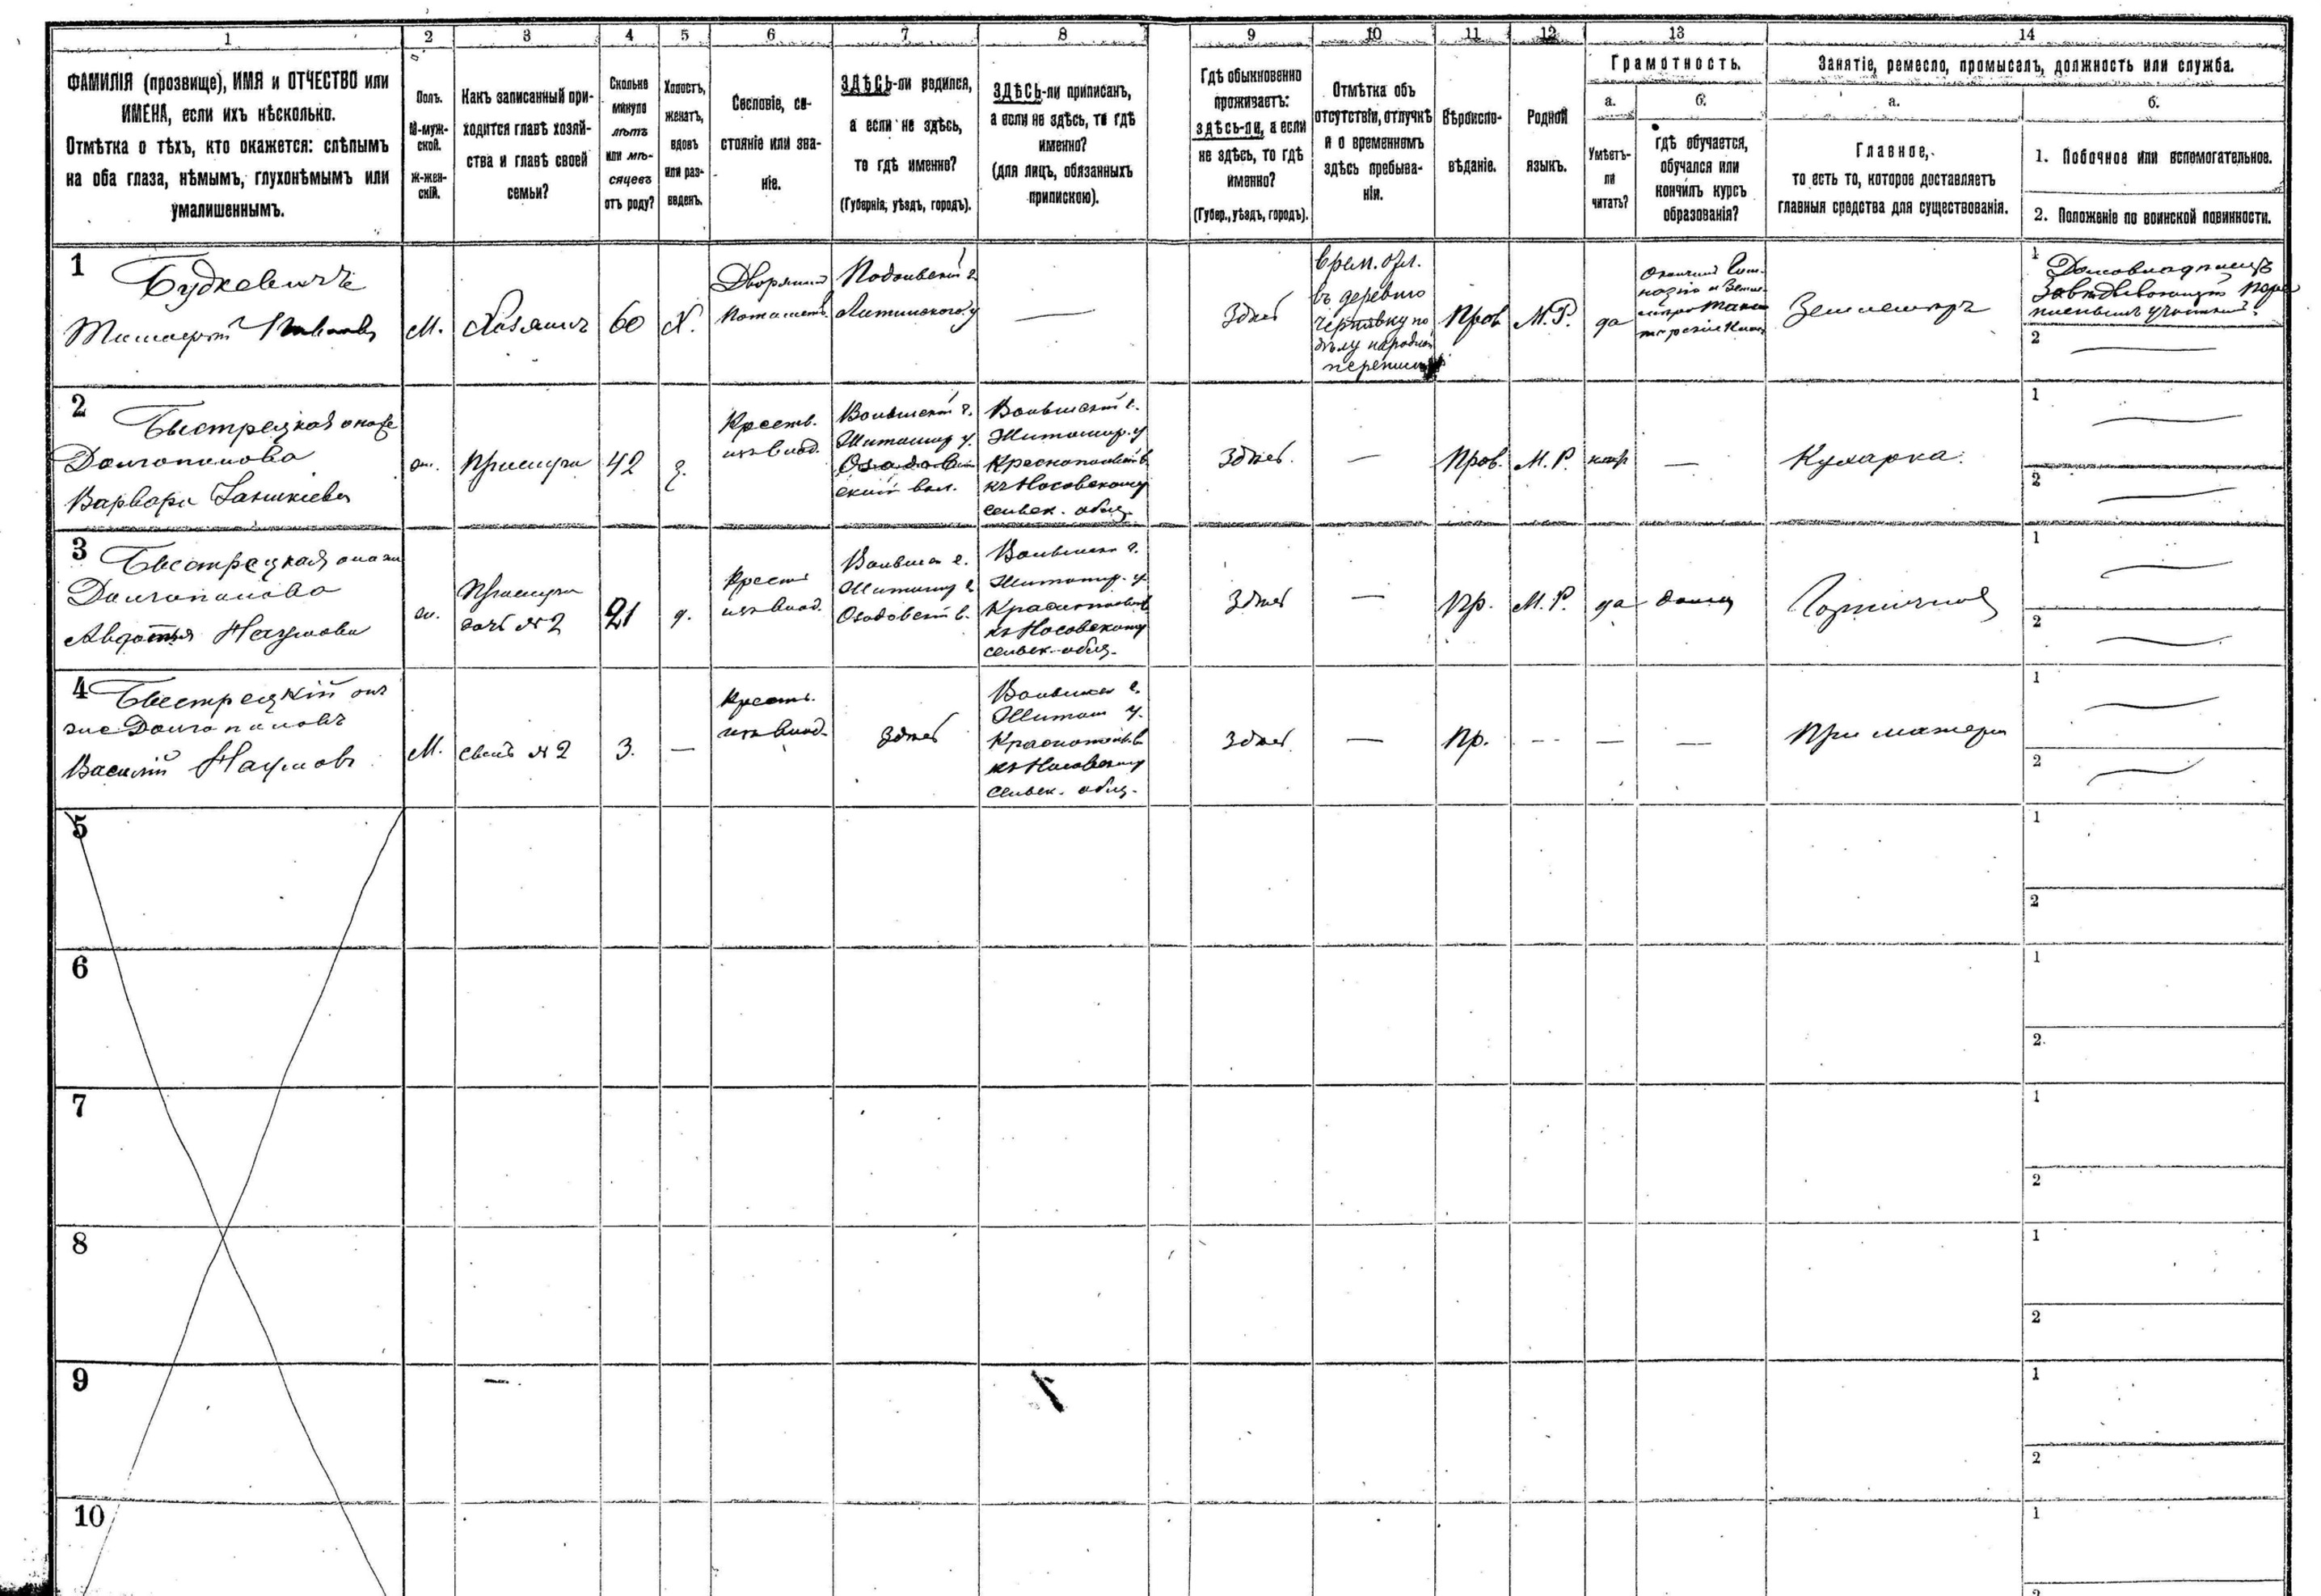 1 2 3 4 5 6 7 8 9 10 11 12 13 14
ФАМИЛІЯ (прозвище), ИМЯ и ОТЧЕСТВО или
ИМЕНА, если ихъ нѣсколько.
Отмѣтка о тѣхъ, кто окажется: слѣпымъ
на оба глаза, нѣмымъ, глухонѣмымъ или
умалишеннымъ.
Полъ.
М-муж-
ской.
Ж-жен-
скій.
Какъ записанный при-
ходится главѣ хозяй-
ства и главѣ своей
семьи?
Сколько
минуло
лѣтъ
или мѣ-
сяцевъ
отъ роду?
Холостъ,
женатъ,
вдовъ
или раз-
веденъ.
Сословіе, со-
стояніе или зва-
ніе.
ЗДѢСЬ-ли родился,
а если не здѣсь,
то гдѣ именно?
(Губернія, уѣздъ, городъ).
ЗДѢСЬ-ли приписанъ,
а если не здѣсь, то гдѣ
именно?
(для лицъ, обязанныхъ
припискою).
Гдѣ обыкновенно
проживаетъ:
здѣсь-ли, а если
не здѣсь, то гдѣ
именно?
(Губер., уѣздъ, городъ).
Отмѣтка объ
отсутствіи, отлучкѣ
и о временномъ
здѣсь пребыва-
ніи.
Вѣроиспо-
вѣданіе.
Родной
языкъ.
Грамотность.
а.
Умѣетъ-
ли
читать?
б.
гдѣ обучается,
обучался или
кончилъ курсъ
образованія?
Занятіе, ремесло, промыселъ, должность или служба.
а.
Главное,
то есть то, которое доставляетъ
главныя средства для существованія.
б.
1. Побочное или вспомогательное.
2. Положеніе по воинской повинности.
1
Будкевичъ
М.
Хозяинъ
60
Х.
Дворянинъ
Потомств.
Подольской г.
Литинского у
Здѣсь
Врем. отл.
въ деревню
Чернявку по
дѣлу народной
переписи
Прав
М.Р.
да
Землемѣръ
1
Домовладѣлецъ
2
2
Быстрецкая она же
Долгополова
Варвара
ж.
Прислуга
42
з.
Крестн.
Волынской г.
Житомир у.
вол.
Волынской г.
Житомир. у
къ Носовскому
сельск. общ.
Здѣсь.
Прав.
М.Р.
нѣтъ
Кухарка.
1
2
3
Быстрецкая она же
Долгополова
Авдотья Наумова
ж.
Прислуга
дочь № 2
21
д.
Крестн
Волынск г.
Житомир у
Волынск г.
Житомир. у.
къ Носовскому
сельск. общ.
Здѣсь
Пр.
М.Р.
да
дома
Горничная
1
2
4
Быстрецкій онъ
же Долгополовъ
Василій Наумовъ
М.
сынъ № 2
3.
Крестн.
Здѣсь
Волынск г.
Житом у.
къ Носовскому
сельск. общ.
Здѣсь
Пр.
При матери
1
2
5
1
2
6
1
2.
7
1
2
8
1
2
9
1
2
10
1
2